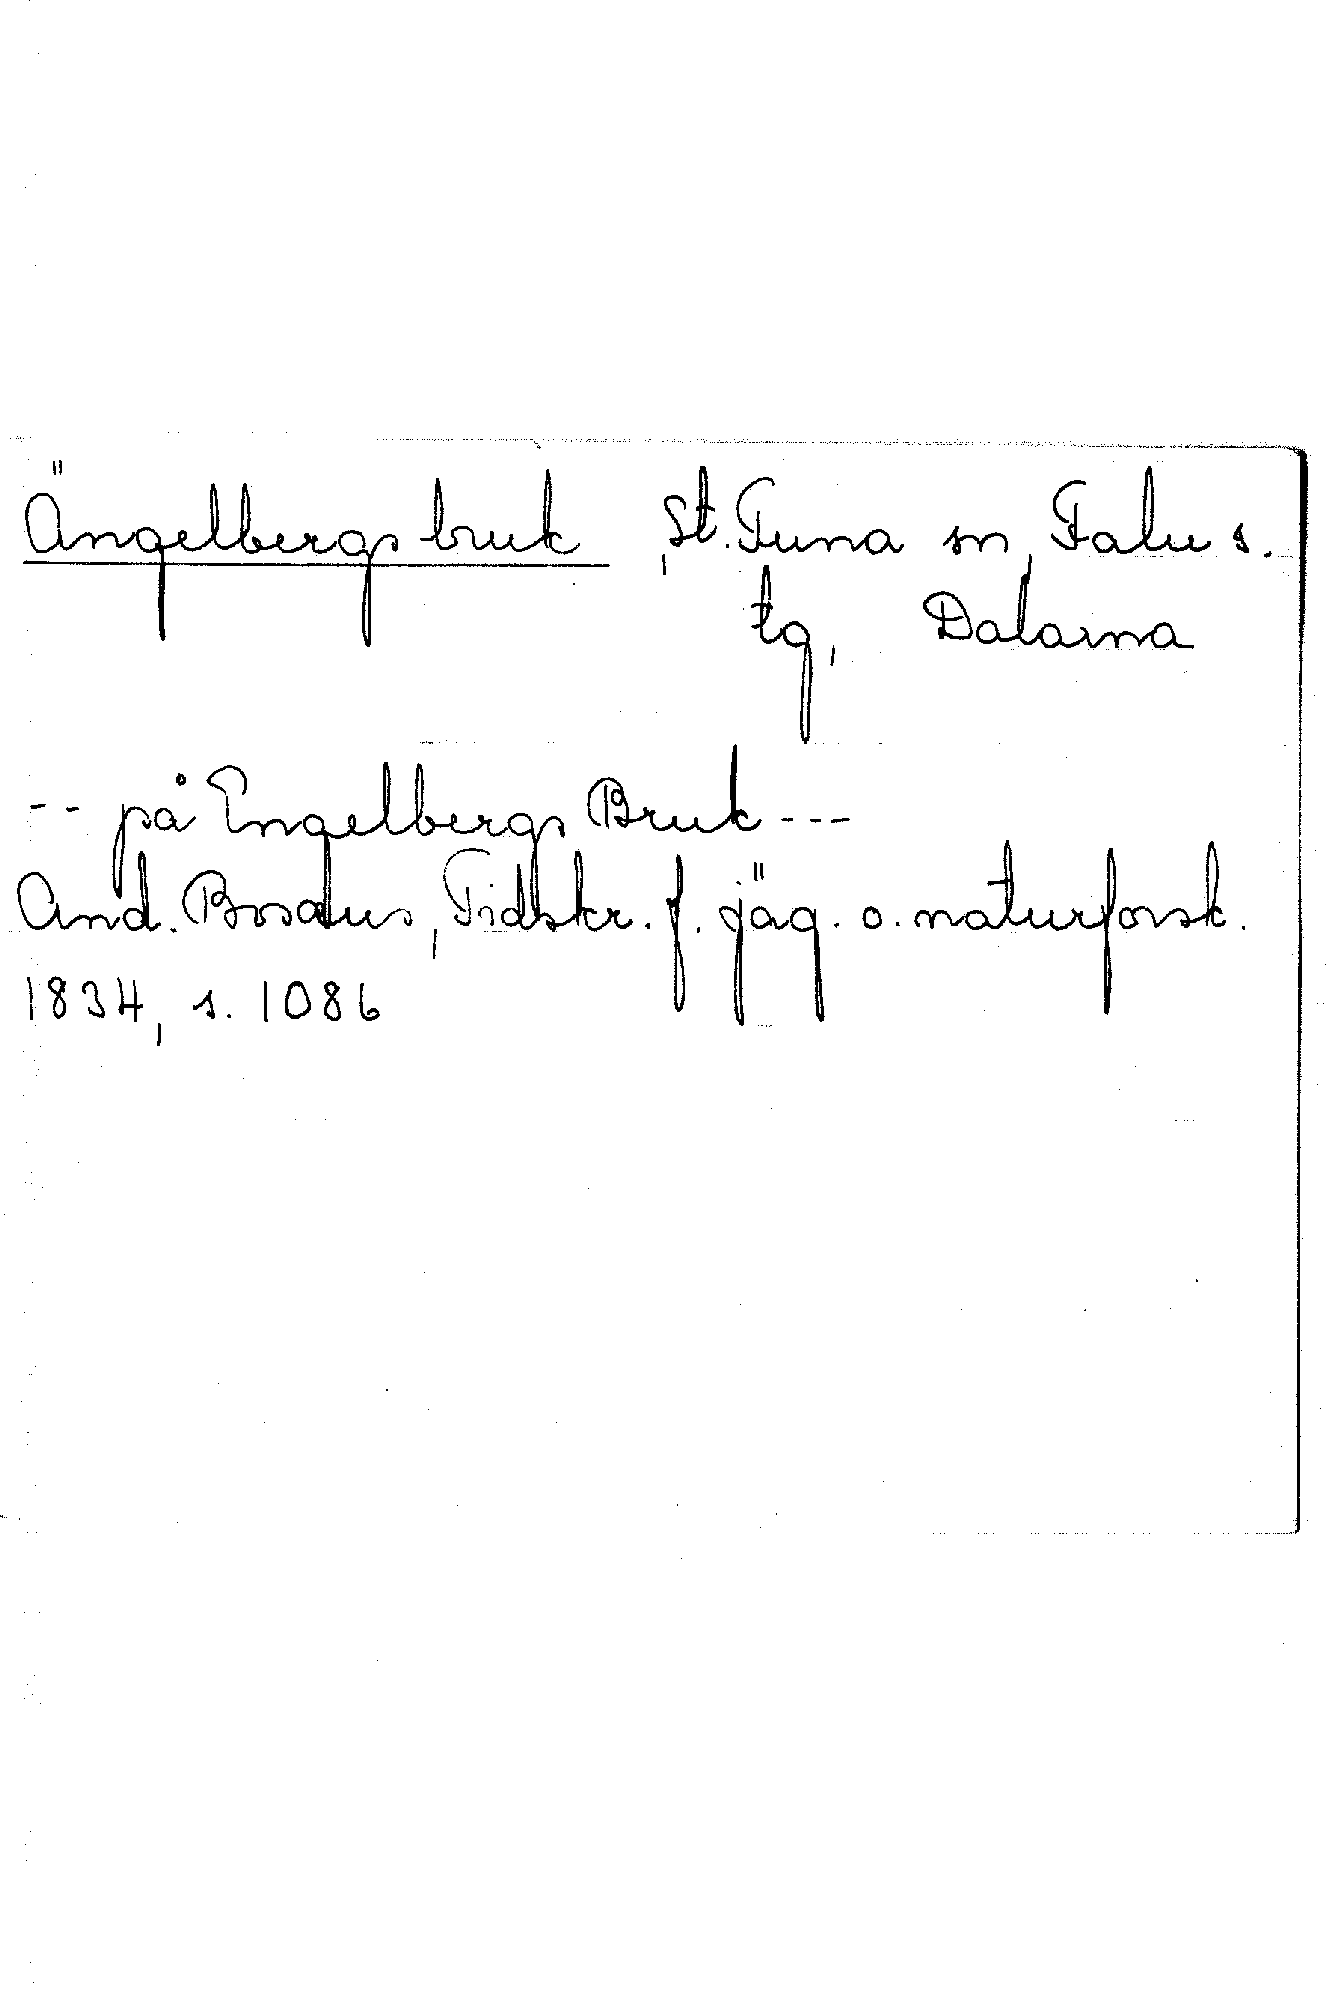 Ängelbergs bruk, St. Tuna sn, Falu s.
tg, Dalarna
-- på Engelbergs Bruk ---
And. Bosæus, Tidskr. f. jäg. o. naturforsk.
1834, s. 1086